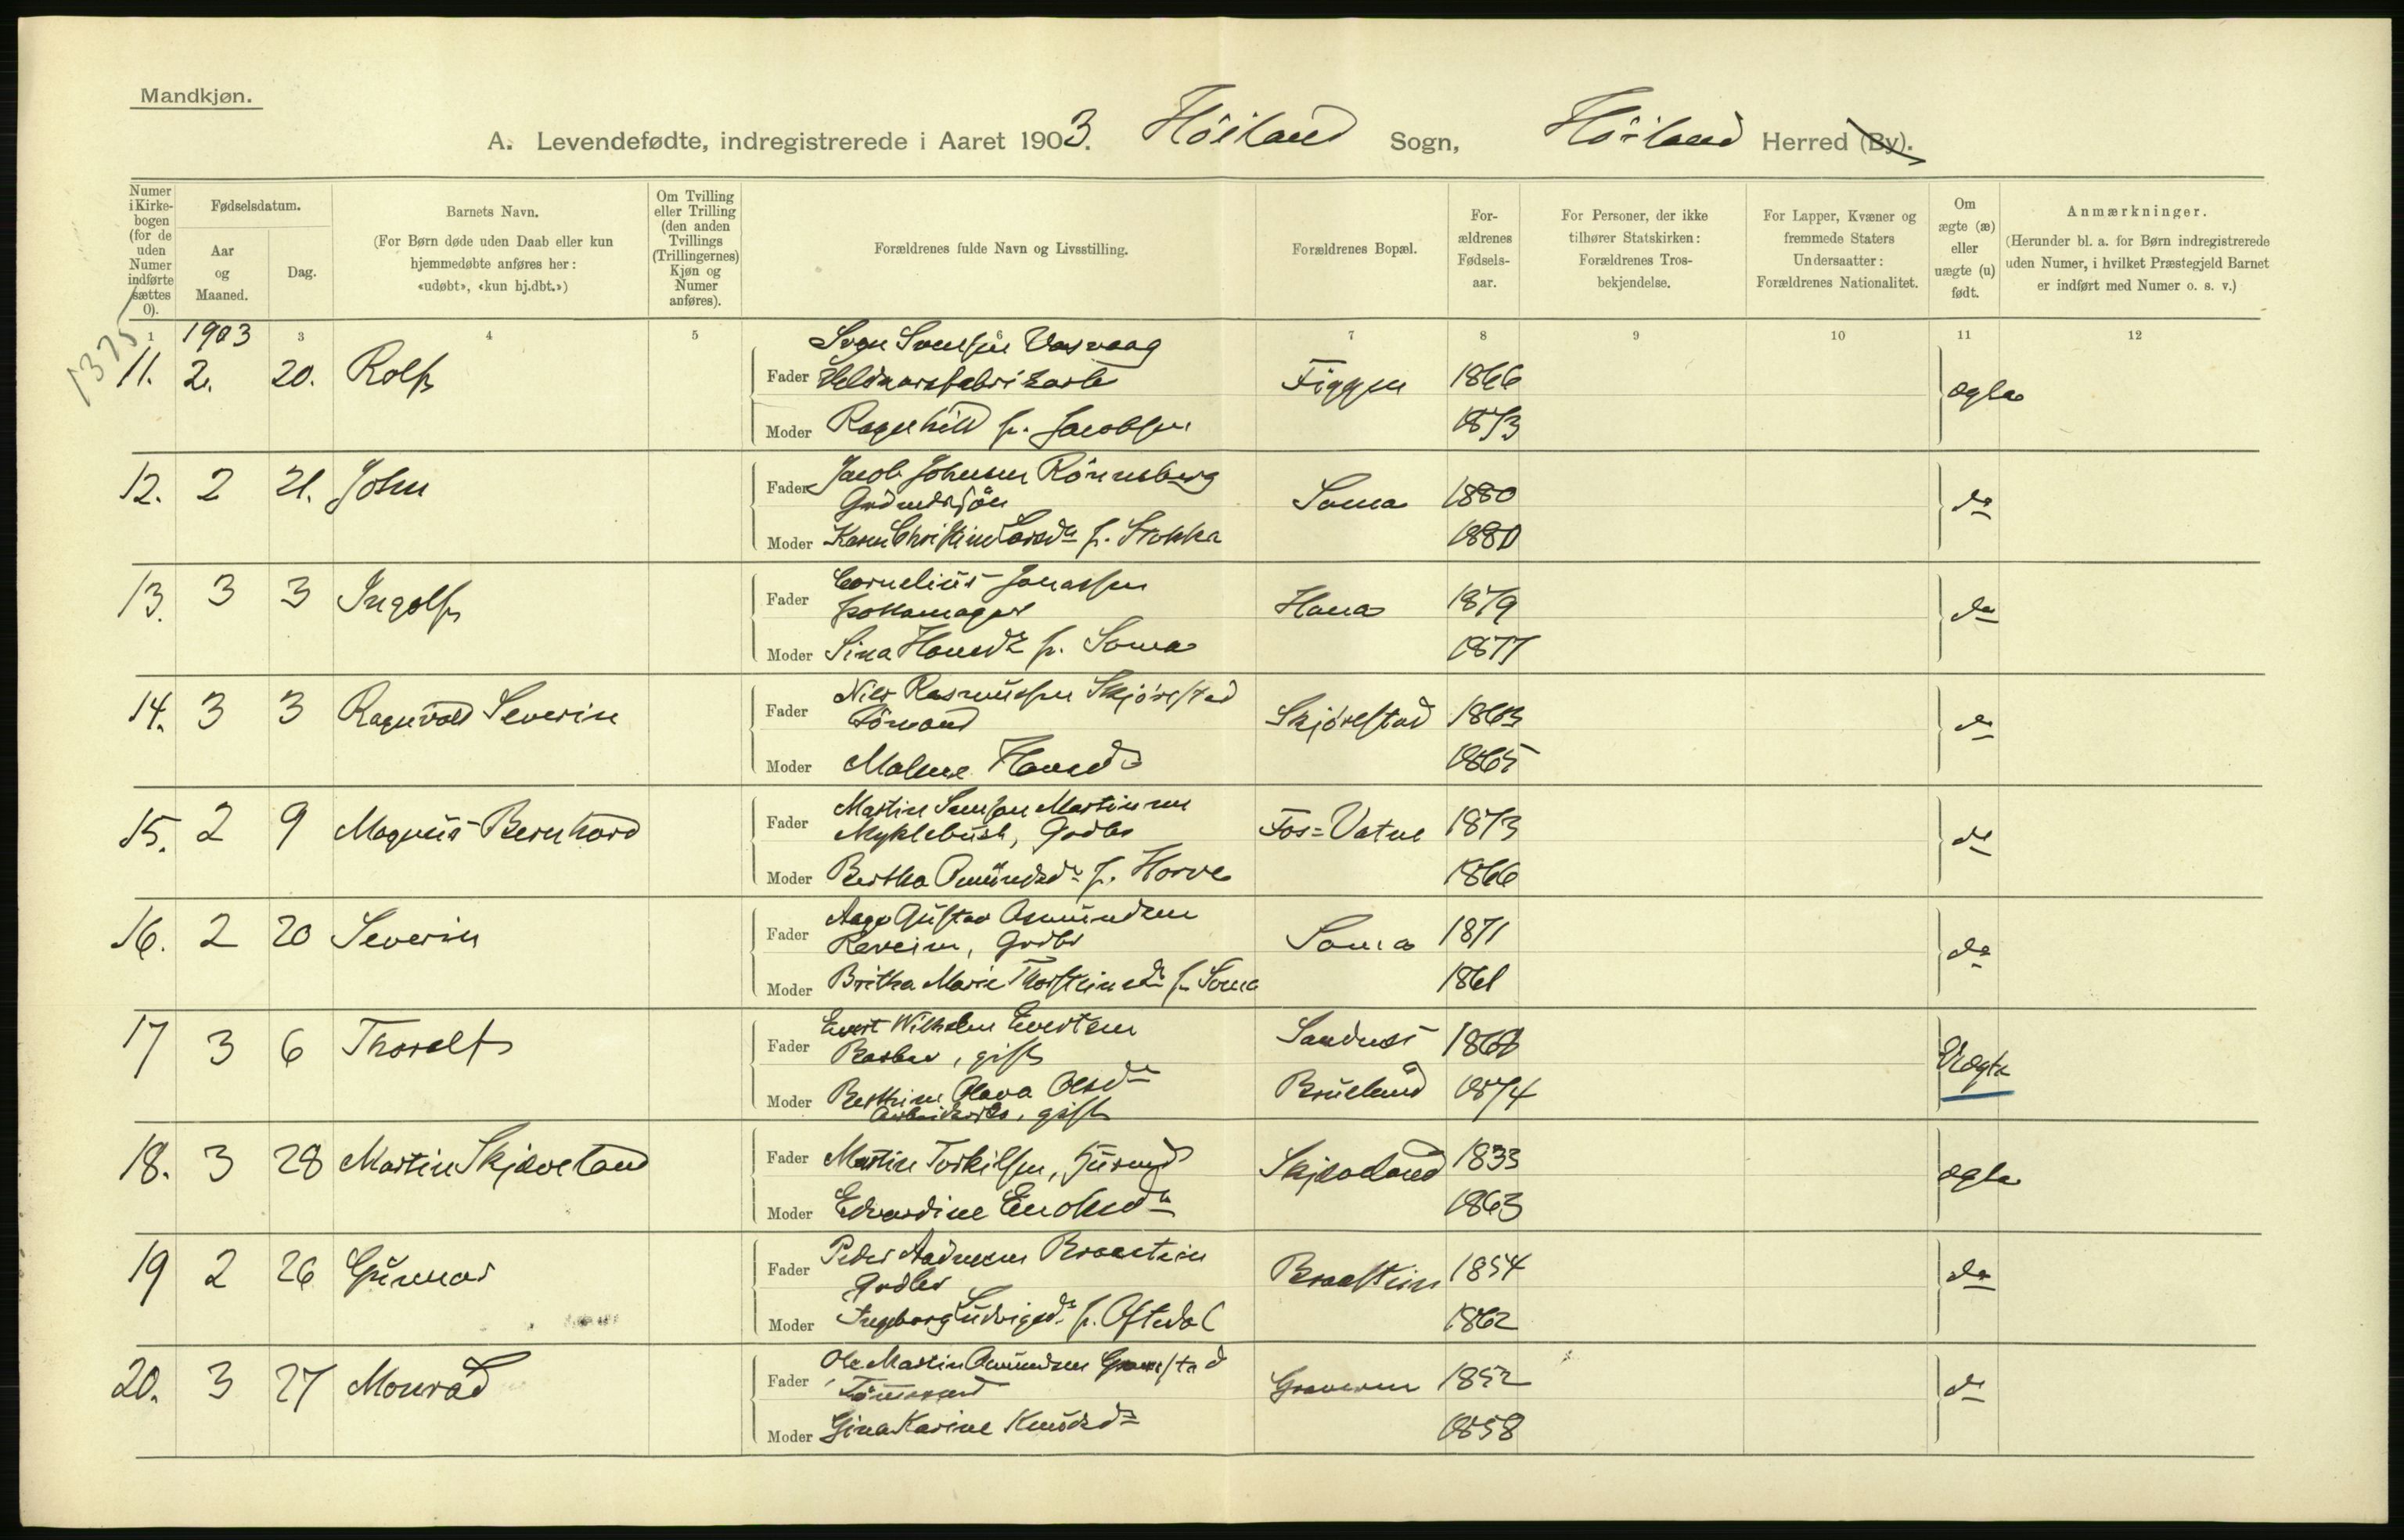 Mandkjøn.
A. Levendefødte, indregistrerede i Aaret 1903. Höiland Sogn, Höiland Herred (By).
Numer i Kirkebogen (for de uden Numer indførte sættes 0).
Fødselsdatum.
Aar og Maaned.
Dag.
Barnets Navn.
(For Børn døde uden Daab eller kun hjemmedøbte anføres her: «udøbt», «kun hj.dbt.»)
Om Tvilling eller Trilling (den anden Tvillings (Trillingernes) Kjøn og Numer anføres).
Forældrenes fulde Navn og Livsstilling.
Forældrenes Bopæl.
Forældrenes Fødselsaar.
For Personer, der ikke tilhører Statskirken: Forældrenes Trosbekjendelse.
For Lapper, Kvæner og fremmede Staters Undersaatter: Forældrenes Nationalitet.
Om ægte (æ) eller uægte (u) født.
Anmærkninger.
(Herunder bl. a. for Børn indregistrerede uden Numer, i hvilket Præstegjeld Barnet er indført med Numer o. s. v.)
1 1903 3 4 5 6 7 8 9 10 11 12
1375
11. 2. 20. Rolf Fader Svend Svendsen Vasvaag
Uldvarefabrikarb Figgen 1866 ægte
Moder Ragnhild f. Jacobsen 1873
12. 2 21. John Fader Jacob Johnsen Rönneberg
Soma 1880 do
Moder Karen Christine Larsdr f. Stokka 1880
13. 3 3 Ingolf Fader Cornelius Jonassen
Pottemager Hana 1879 do
Moder Sina Hansdr f. Soma 1877
14. 3 3 Ragnvald Severin Fader Nils Rasmussen Skjörestad
Skjörestad 1863 do
Moder Malene Hansd 1865
15. 2 9 Magnus Bernhard Fader Martin Samson Martinsen
Myklebust, Gdbr Fos=Vatne 1873 do
Moder Bertha Omundsdr f. Horve 1866
16. 2 20 Severin Fader Aage Gustav Asmundsen
Gdbr Soma 1871 do
Moder Britha Marie Thorsteinsdr f. Soma 1861
17 3 6 Thoralf Fader Evert Wilhelm Evertsen
Barber, gift Sandnes 1868 Uægte
Moder Berthine Olava Olsdr Brueland 1874
gift
18. 3 28 Martin Skjæveland Fader Martin Torkilsen, Husmd Skjæveland 1833 ægte
Moder Edvardine Enoksdr 1863
19 2 26 Gunnar Fader Peder Andersen Braastein
Gdbr Braastein 1854 do
Moder Ingeborg Ludvigsdr f. Oftedal 1862
20. 3 27 Monrad Fader Ole Martin Omundsen Gramstad
Tömmermd Graveren 1852 do
Moder Gina Karine Knudsdr 1858